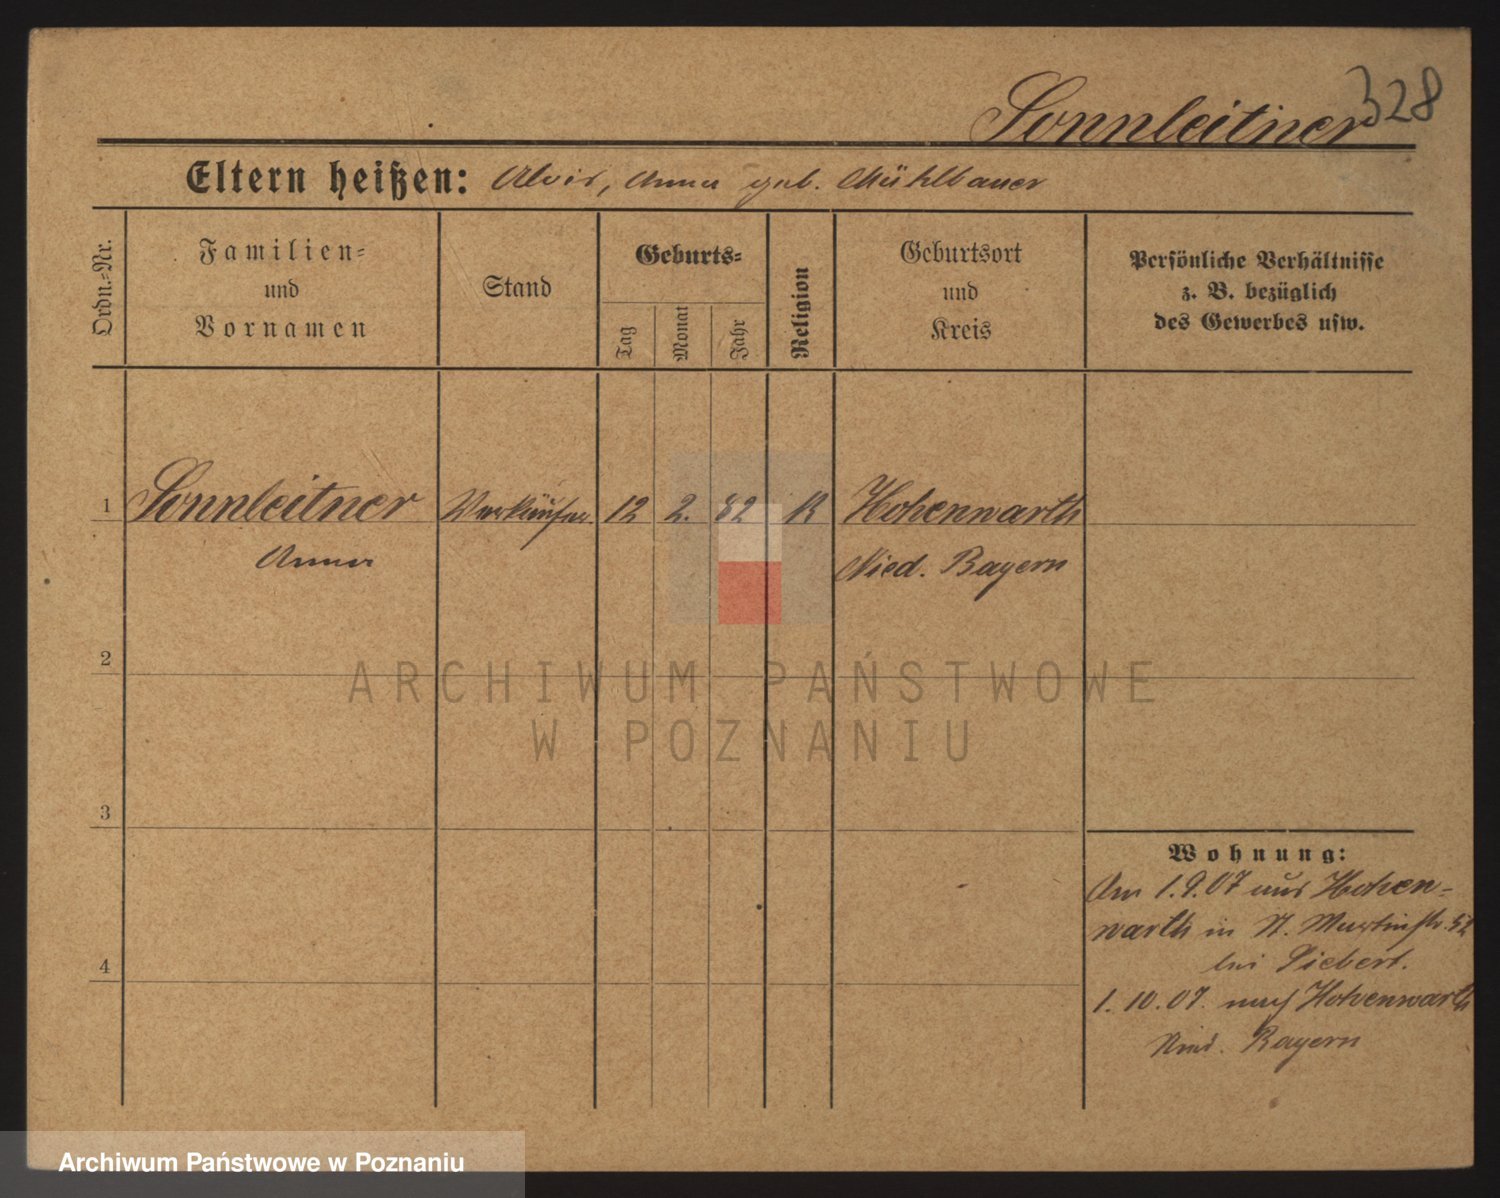 328
Sonnleitner
Eltern heißen: Alois, Anna geb. Mühlbauer
Ordn.-Nr.
Familien-
und
Vornamen
Stand
Geburts-
Tag
Monat
Jahr
Religion
Geburtsort
und
Kreis
Persönliche Verhältnisse
z. B. bezüglich
des Gewerbes usw.
1 Sonnleitner Verkäufer. 12 2. 82 K Hohenwarth
Anna Nied. Bayern
2
ARCHIWUM PAŃSTWOWE
W POZNANIU
3
Wohnung:
Am 1.9.07 aus Hohen-
warth in St. Martinstr. 52
bei Siebert.
4
1. 10. 07. nach Hohenwarth
Nied. Bayern
Archiwum Państwowe w Poznaniu